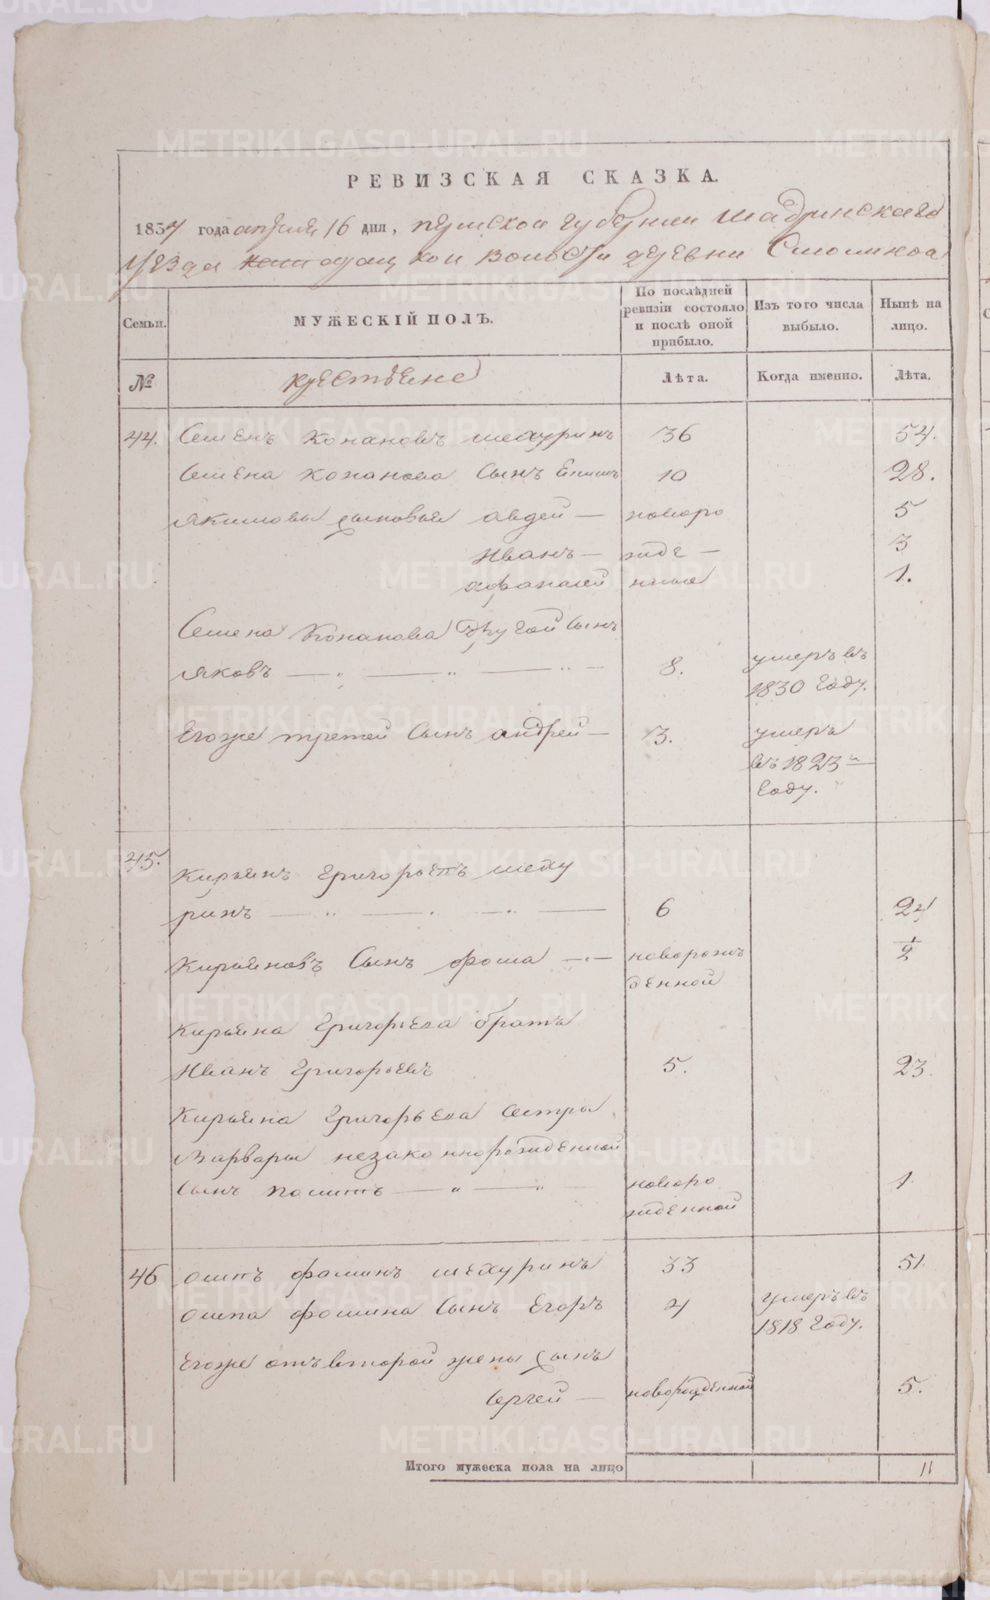 РЕВИЗСКАЯ СКАЗКА.
1834 года апреля 16 дня, пермской губернии шадринскаго
уезда кой волости деревни
Семьи. МУЖЕСКІЙ ПОЛЪ. По послѣдней ревизіи состояло и послѣ оной прибыло. Изъ того числа выбыло. Нынѣ на лицо.
№ крестьяне Лѣта. Когда именно. Лѣта.
44. Семенъ Конановъ шехуринъ 36 54.
Семена Конанова Сынъ 10 28.
Якимовы сыновья авдей — новоро 5
Иванъ — жде — 3
афанасей нные 1.
Семена Конанова другой Сынъ
Яковъ — 8. умеръ въ 1830 году.
Егоже третей Сынъ андрей — 3. умеръ въ 1823м году.
45. Кирьянъ Григорьевъ шеху
ринъ — 6 24
Кирьяновъ Сынъ фома — новорож 1/2
денной
Кирьяна Григорьева братъ
Иванъ Григорьевъ 5. 23.
Кирьяна Григорьева сестры
Варвары незаконнорожденной
Сынъ — новоро 1.
жденной
46 осипъ фоминъ шехуринъ 33 51.
осипа фомина Сынъ Егоръ 4 умеръ въ 1818 году.
Егоже отъ второй жены сынъ
сергей — новорожденной 5.
Итого мужеска пола на лицо 11
METRIKI.GASO-URAL.RU